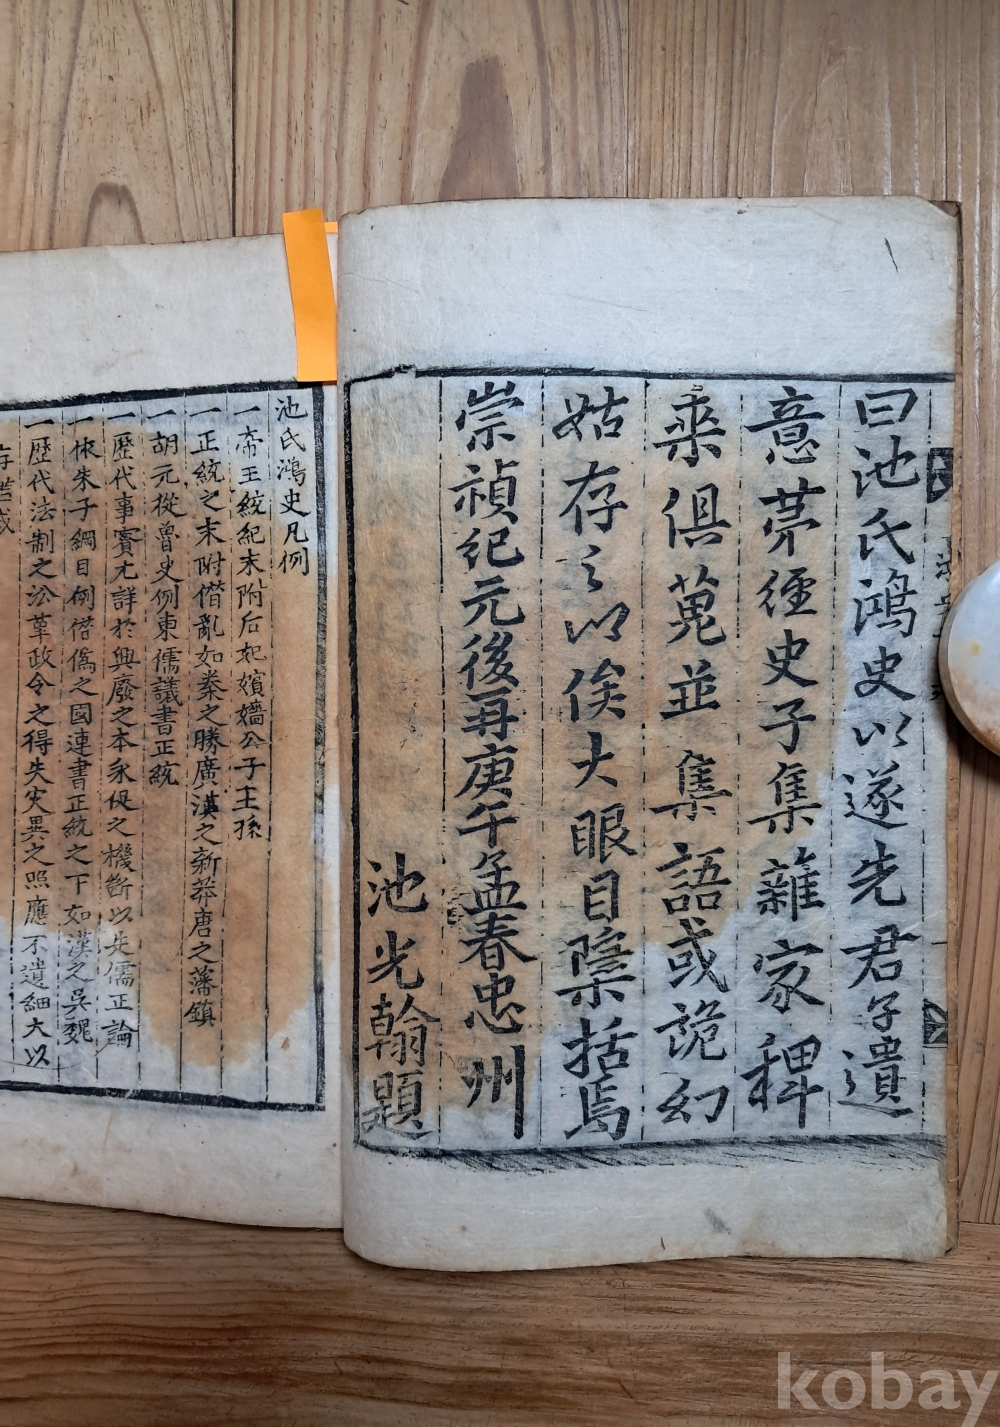 曰池氏鴻史以遂先君子遺
意茅經史子集雜家稗
乘俱蒐並集語或詭幻
姑存之以俟大眼目櫽括焉
崇禎紀元後再庚午孟春忠州
池光翰題
池氏鴻史凡例
一帝王統紀末附后妃嬪嬙公子王孫
一正統之末附僭亂如秦之勝廣漢之新莽唐之藩鎮
一胡元從魯史例東儒議書正統
一歷代事實尤詳於興廢之本永促之機斷以先儒正論
一依朱子綱目例僭僞之國連書正統之下如漢之吳魏
一歷代法制之沿革政令之得失災異之照應不遺細大以
kobay